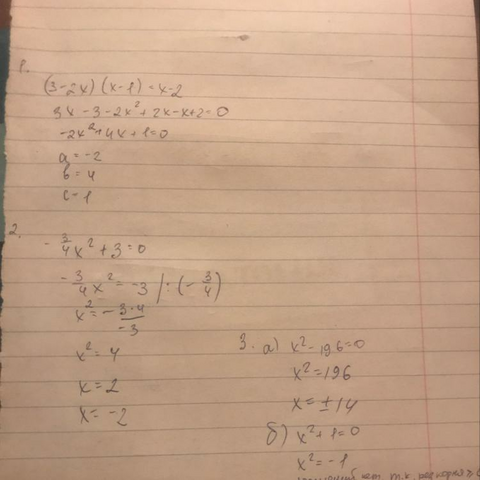 1.
(3-2x)(x-1)=x-2
3x-3-2x²+2x-x+2=0
-2x²+4x+1=0
a=-2
b=4
c-1
2.
-3/4x²+3=0
-3/4x²=-3 |:(-3/4)
x²=-3·4/-3
x²=4
x=2
x=-2
3. а) x²-196=0
x²=196
x=±14
б) x²+1=0
x²=-1
нет, т.к.